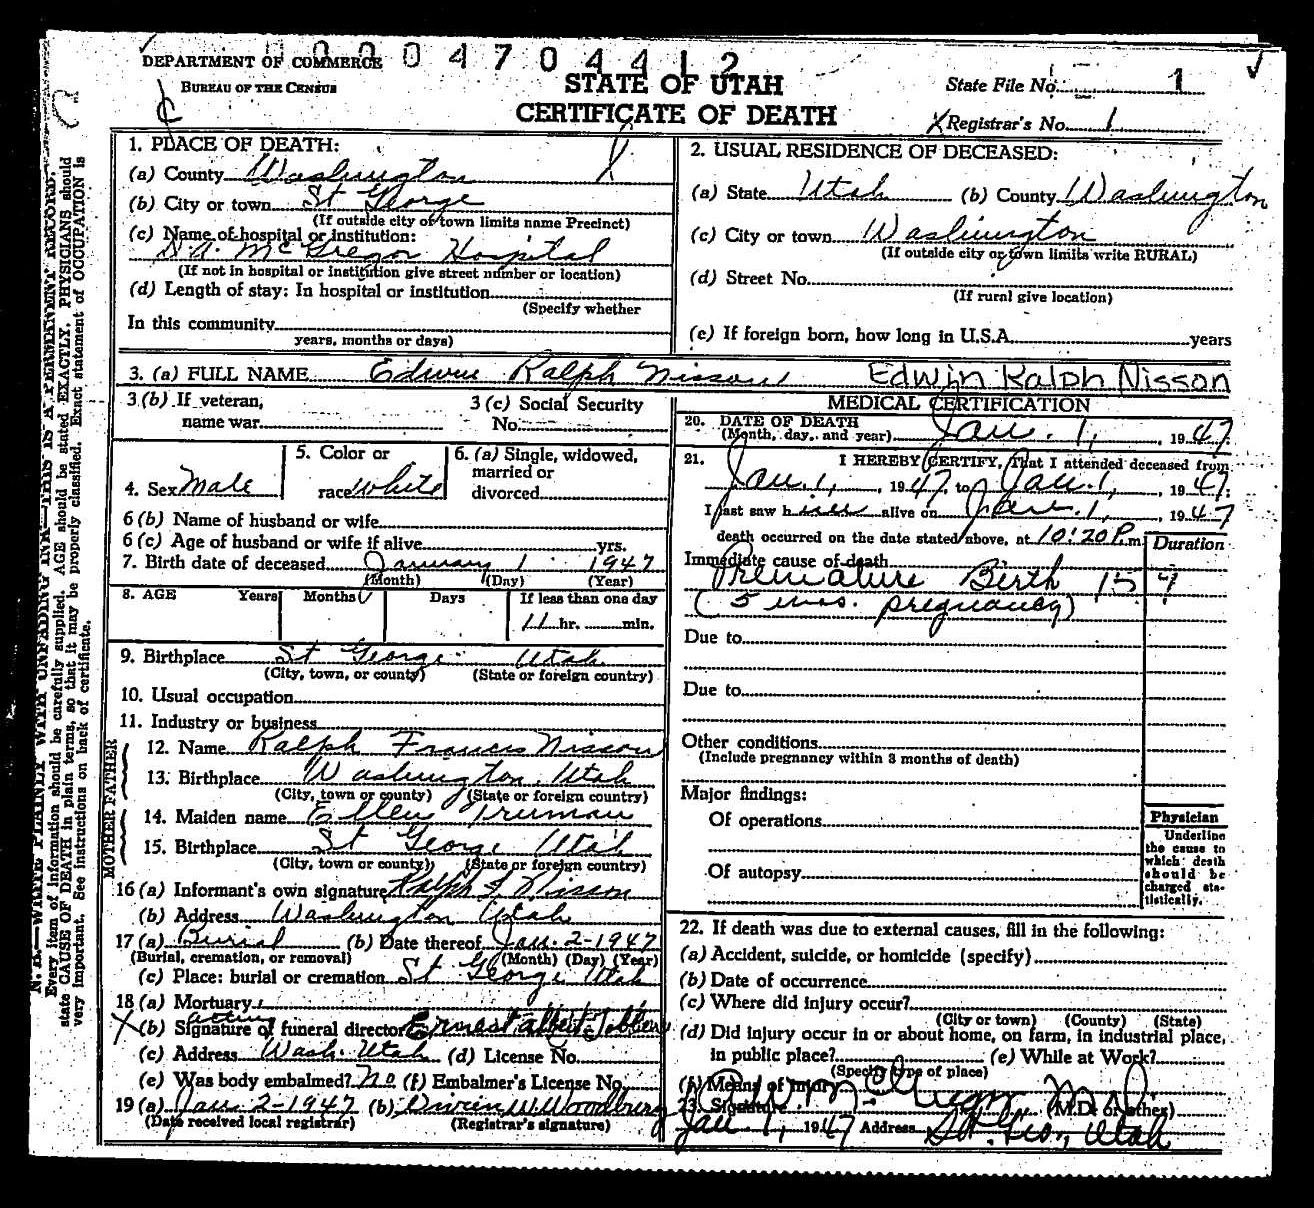 00004704412
DEPARTMENT OF COMMERCE
BUREAU OF THE CENSUS
STATE OF UTAH
CERTIFICATE OF DEATH
State File No. 1
Registrar's No. 1
1. PLACE OF DEATH:
(a) County Washington
(b) City or town St George
(If outside city or town limits name Precinct)
(c) Name of hospital or institution:
D. A. McGregor Hospital
(If not in hospital or institution give street number or location)
(d) Length of stay: In hospital or institution
(Specify whether
In this community
years, months or days)
2. USUAL RESIDENCE OF DECEASED:
(a) State Utah (b) County Washington
(c) City or town Washington
(If outside city or town limits write RURAL)
(d) Street No.
(If rural give location)
(e) If foreign born, how long in U.S.A. years
3. (a) FULL NAME Edwin Ralph Nisson Edwin Ralph Nisson
3 (b) If veteran,
name war
3 (c) Social Security
No.
4. Sex Male
5. Color or
race White
6. (a) Single, widowed,
married or
divorced
6 (b) Name of husband or wife
6 (c) Age of husband or wife if alive yrs.
7. Birth date of deceased January 1 1947
(Month) (Day) (Year)
8. AGE Years Months Days If less than one day
11 hr. min.
9. Birthplace St George Utah
(City, town, or county) (State or foreign country)
10. Usual occupation
11. Industry or business
FATHER
12. Name Ralph Francis Nisson
13. Birthplace Washington, Utah
(City, town or county) (State or foreign country)
MOTHER
14. Maiden name Ellen Truman
15. Birthplace St George Utah
(City, town, or county) (State or foreign country)
16 (a) Informant's own signature Ralph F. Nisson
(b) Address Washington Utah
17 (a) Burial (b) Date thereof Jan. 2-1947
(Burial, cremation, or removal) (Month) (Day) (Year)
(c) Place: burial or cremation St George Utah
18 (a) Mortuary
acting
(b) Signature of funeral director Ernest Albert
(c) Address Wash. Utah (d) License No.
(e) Was body embalmed? No (f) Embalmer's License No.
19 (a) Jan 2-1947 (b) W. Woodbury
(Date received local registrar) (Registrar's signature)
MEDICAL CERTIFICATION
20. DATE OF DEATH
(Month, day, and year) Jan. 1, 1947
21. I HEREBY CERTIFY, That I attended deceased from
Jan. 1, 1947, to Jan. 1, 1947;
I last saw him alive on Jan. 1, 1947
death occurred on the date stated above, at 10:20 P.m.
Duration
Immediate cause of death
Premature Birth 159
(5 mos. pregnancy)
Due to
Due to
Other conditions
(Include pregnancy within 3 months of death)
Major findings:
Of operations
Of autopsy
Physician
Underline
the cause to
which death
should be
charged sta-
tistically.
22. If death was due to external causes, fill in the following:
(a) Accident, suicide, or homicide (specify)
(b) Date of occurrence
(c) Where did injury occur?
(City or town) (County) (State)
(d) Did injury occur in or about home, on farm, in industrial place,
in public place? (e) While at Work?
(Specify type of place)
(f) Means of injury
23. Signature McGregor M.D. (M.D. or other)
Jan 1, 1947 Address St. Geo, Utah
N. B.—WRITE PLAINLY WITH UNFADING INK—THIS IS A PERMANENT RECORD.
Every item of information should be carefully supplied. AGE should be stated EXACTLY. PHYSICIANS should
state CAUSE OF DEATH in plain terms, so that it may be properly classified. Exact statement of OCCUPATION is
very important. See instructions on back of certificate.